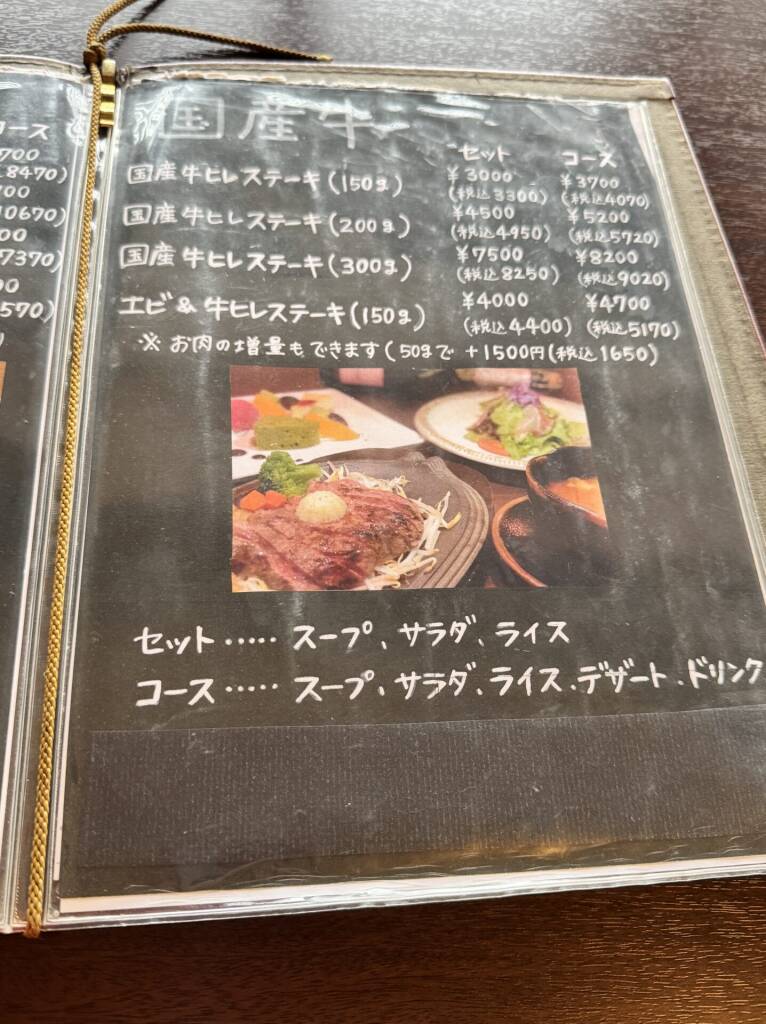 コース
700
8470)
700
10670)
00
7370)
00
570)
)
国産牛
セット コース
国産牛ヒレステーキ(150g) ¥3000 ¥3700
(税込3300) (税込4070)
国産牛ヒレステーキ(200g) ¥4500 ¥5200
(税込4950) (税込5720)
国産牛ヒレステーキ(300g) ¥7500 ¥8200
(税込8250) (税込9020)
エビ&牛ヒレステーキ(150g) ¥4000 ¥4700
(税込4400) (税込5170)
※お肉の増量もできます(50gで+1500円(税込1650)
セット‥‥‥スープ、サラダ、ライス
コース‥‥‥スープ、サラダ、ライス、デザート、ドリンク